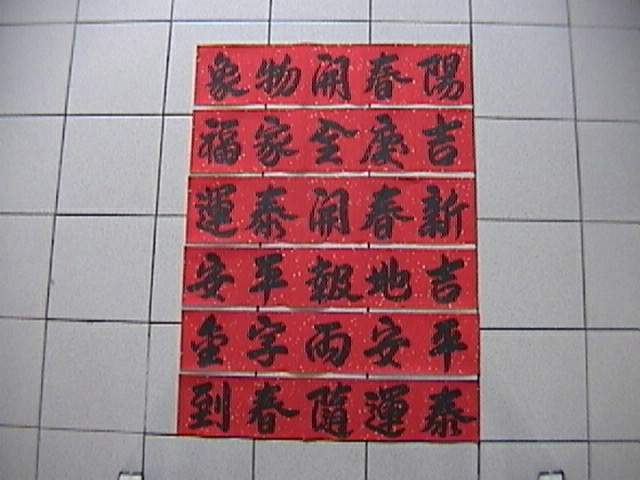 陽春開物象
吉慶全家福
新春開泰運
吉地報平安
平安兩字金
泰運隨春到